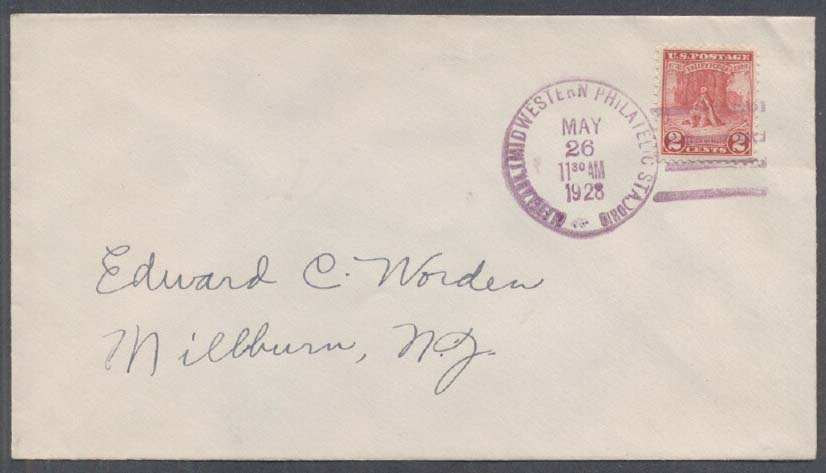 U.S. POSTAGE
VALLEY FORGE
2 CENTS 2
CLEVELAND (MIDWESTERN PHILATELIC STA.) OHIO
MAY
26
11 30 AM
1928
Edward C. Worden
Millburn, N.J.